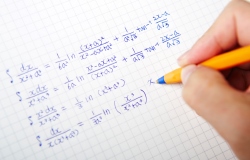 ∫ dx/(x³+a³) = 1/(6a²) ln (x+a)²/(x²-ax+a²) + 1/(a²√3) tan⁻¹ (2x-a)/(a√3)
∫ x dx/(x³+a³) = 1/(6a) ln (x²-ax+a²)/(x+a)² + 1/(a√3) tan⁻¹ (2x-a)/(a√3)
∫ x²dx/(x³+a³) = 1/3 ln (x³+a³)
∫ dx/(x(x³+a³)) = 1/(3a³) ln (x³/(x³+a³))